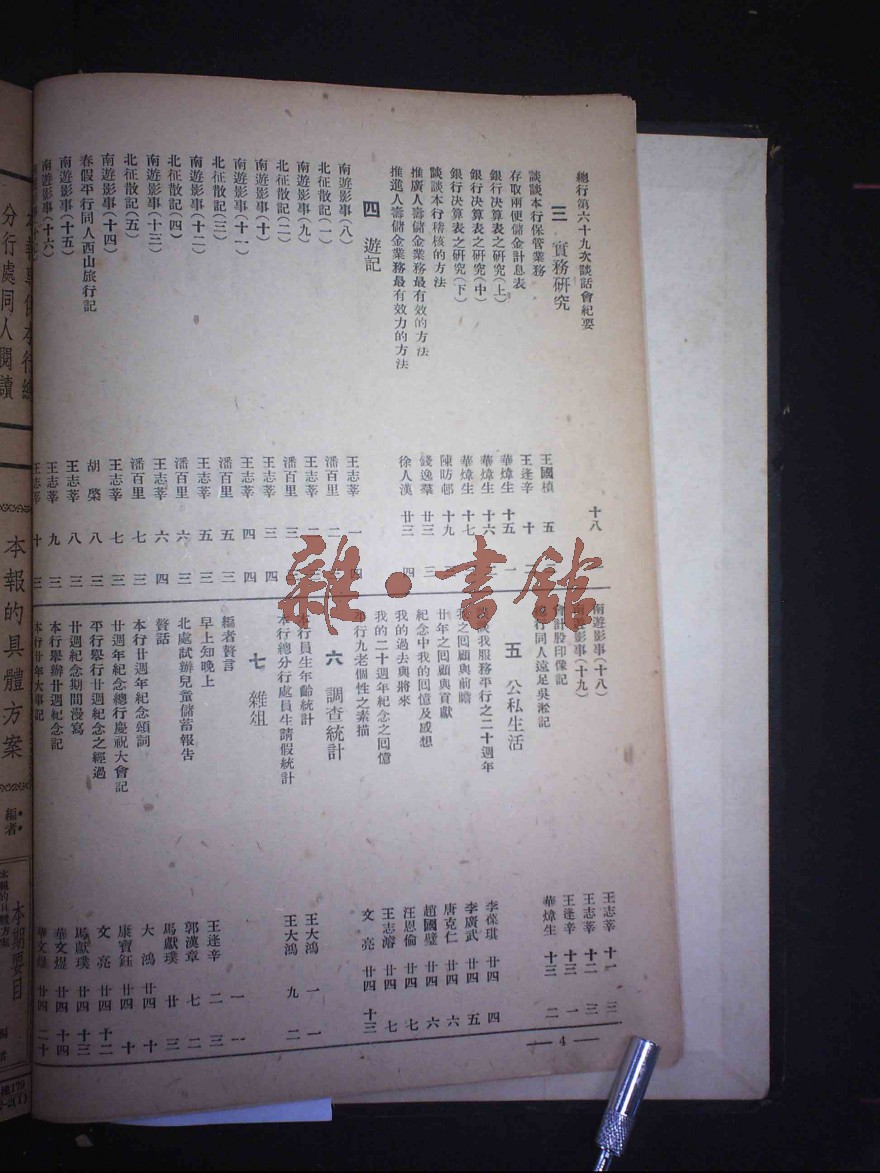 總行第六十九次談話會紀要 十八
三 實務研究
談談本行保管業務 王國楨 五
存取兩便儲金計息表 王逢辛 十 二
銀行決算表之研究(上) 華煒生 十五 一
銀行決算表之研究(中) 華煒生 十六
銀行決算表之研究(下) 華煒生 十七
談談本行稽核的方法 陳昉邨 十九
推廣人壽儲金業務最有效的方法 錢逸羣 廿三 三
推進人壽儲金業務最有效力的方法 徐人漢 廿三 四
四 遊記
南遊影事(八) 王志莘 一 四
北征散記(一) 潘百里 二
南遊影事(九) 王志莘 二
北征散記(二) 潘百里 三
南遊影事(十) 王志莘 三
南遊影事(十一) 王志莘 四 四
北征散記(三) 潘百里 五 三
南遊影事(十二) 王志莘 五 三
北征散記(四) 潘百里 六 三
南遊影事(十三) 王志莘 六 四
北征散記(五) 潘百里 七 三
南遊影事(十四) 王志莘 七 三
春假平行同人西山旅行記 胡 棨 八 三
南遊影事(十五) 王志莘 八 三
南遊影事(十六) 王志莘 九 三
王志莘 十 三
南遊影事(十八) 王志莘 十一 三
南遊影事(十九) 王志莘 十二 三
會計股印像記 王逢辛 十三 一
行同人遠足吳淞記 華煒生 十三 二
五 公私生活
我服務平行之二十週年 李葆琪 廿四 四
我之回顧與前瞻 李廣武 廿四 五
廿年之回顧與貢獻 唐克仁 廿四 六
紀念中我的回憶及感想 趙國璧 廿四 六
我的過去與將來 汪恩倫 廿四 七
我的二十週年紀念之回憶 王志濬 廿四 七
平行九老個性之素描 文 亮 廿四 十三
六 調查統計
本行員生年齡統計 王大鴻 一 一
本行總分行處員生請假統計 王大鴻 九 二
七 雜俎
編者贅言 一 一
早上知晚上 王逢辛 二 三
北處試辦兒童儲蓄報告 郭漢章 七 二
贅話 馬獻璞 廿 三
本行廿週年紀念頌詞 大 鴻 廿四 十
廿週年紀念總行慶祝大會記 康寶鈺 廿四 十
平行舉行廿週紀念之經過 文 亮 廿四 十二
廿週紀念期間漫寫 馬獻璞 廿四 十三
本行舉辦廿週紀念記 華文煜 廿四 十四
本行廿年大事記 華文煜 廿四 二十
— 4 —
分行處同人閱讀
本報的具體方案
編者
本期要目
雜·書館